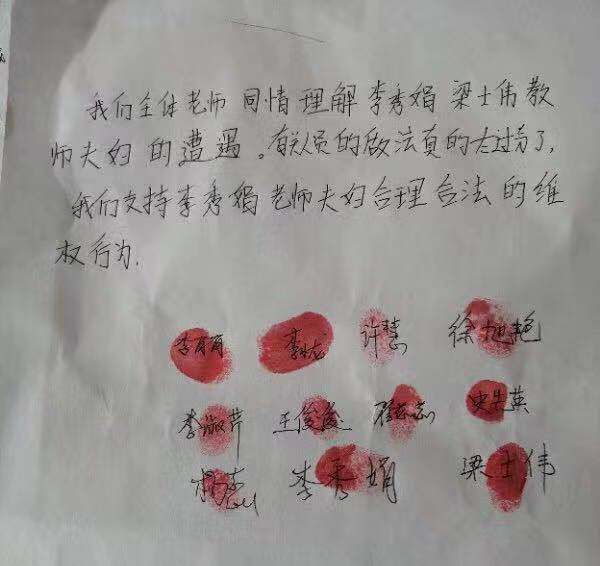 我们全体老师同情理解李秀娟梁士伟教
师夫妇的遭遇。有关人员的做法真的太过分了,
我们支持李秀娟老师夫妇合理合法的维
权行为.
许慧 徐旭艳
李淑芹 王俊成 史先英
李秀娟 梁士伟